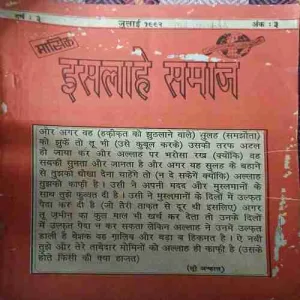 वर्ष : ३
जुलाई १९९५
अंक : ३
मासिक
इसलाहे समाज
और अगर वह (हक़ीक़त को झुठलाने वाले) सुलह (समझौता)
को झुकें तो तू भी (उसे कुबूल करके) उसकी तरफ़ अटल
हो जाया कर और अल्लाह पर भरोसा रख (क्योंकि) वह
सबकी सुनता और जानता है और अगर यह सुलह के बहाने
से तुझको धोखा देना चाहेंगे तो (न दे सकेंगे क्योंकि) अल्लाह
तुझको काफ़ी है। उसी ने अपनी मदद और मुसलमानों के
साथ तुझे कुव्वत दी है। उसी ने मुसलमानों के दिलों में उल्फ़त
पैदा कर दी है (जो तेरी ताक़त से दूर थी इसलिए) अगर
तू ज़मीन का कुल माल भी खर्च कर देता तो उनके दिलों
में उल्फ़त पैदा न कर सकता लेकिन अल्लाह ने उनमें उल्फ़त
डाली है बेशक वह ग़ालिब और बड़ा बा हिकमत है। ऐ नबी
तुझे और तेरे ताबेदार मोमिनों को अल्लाह ही काफ़ी है (उसके
होते किसी की क्या हाजत)